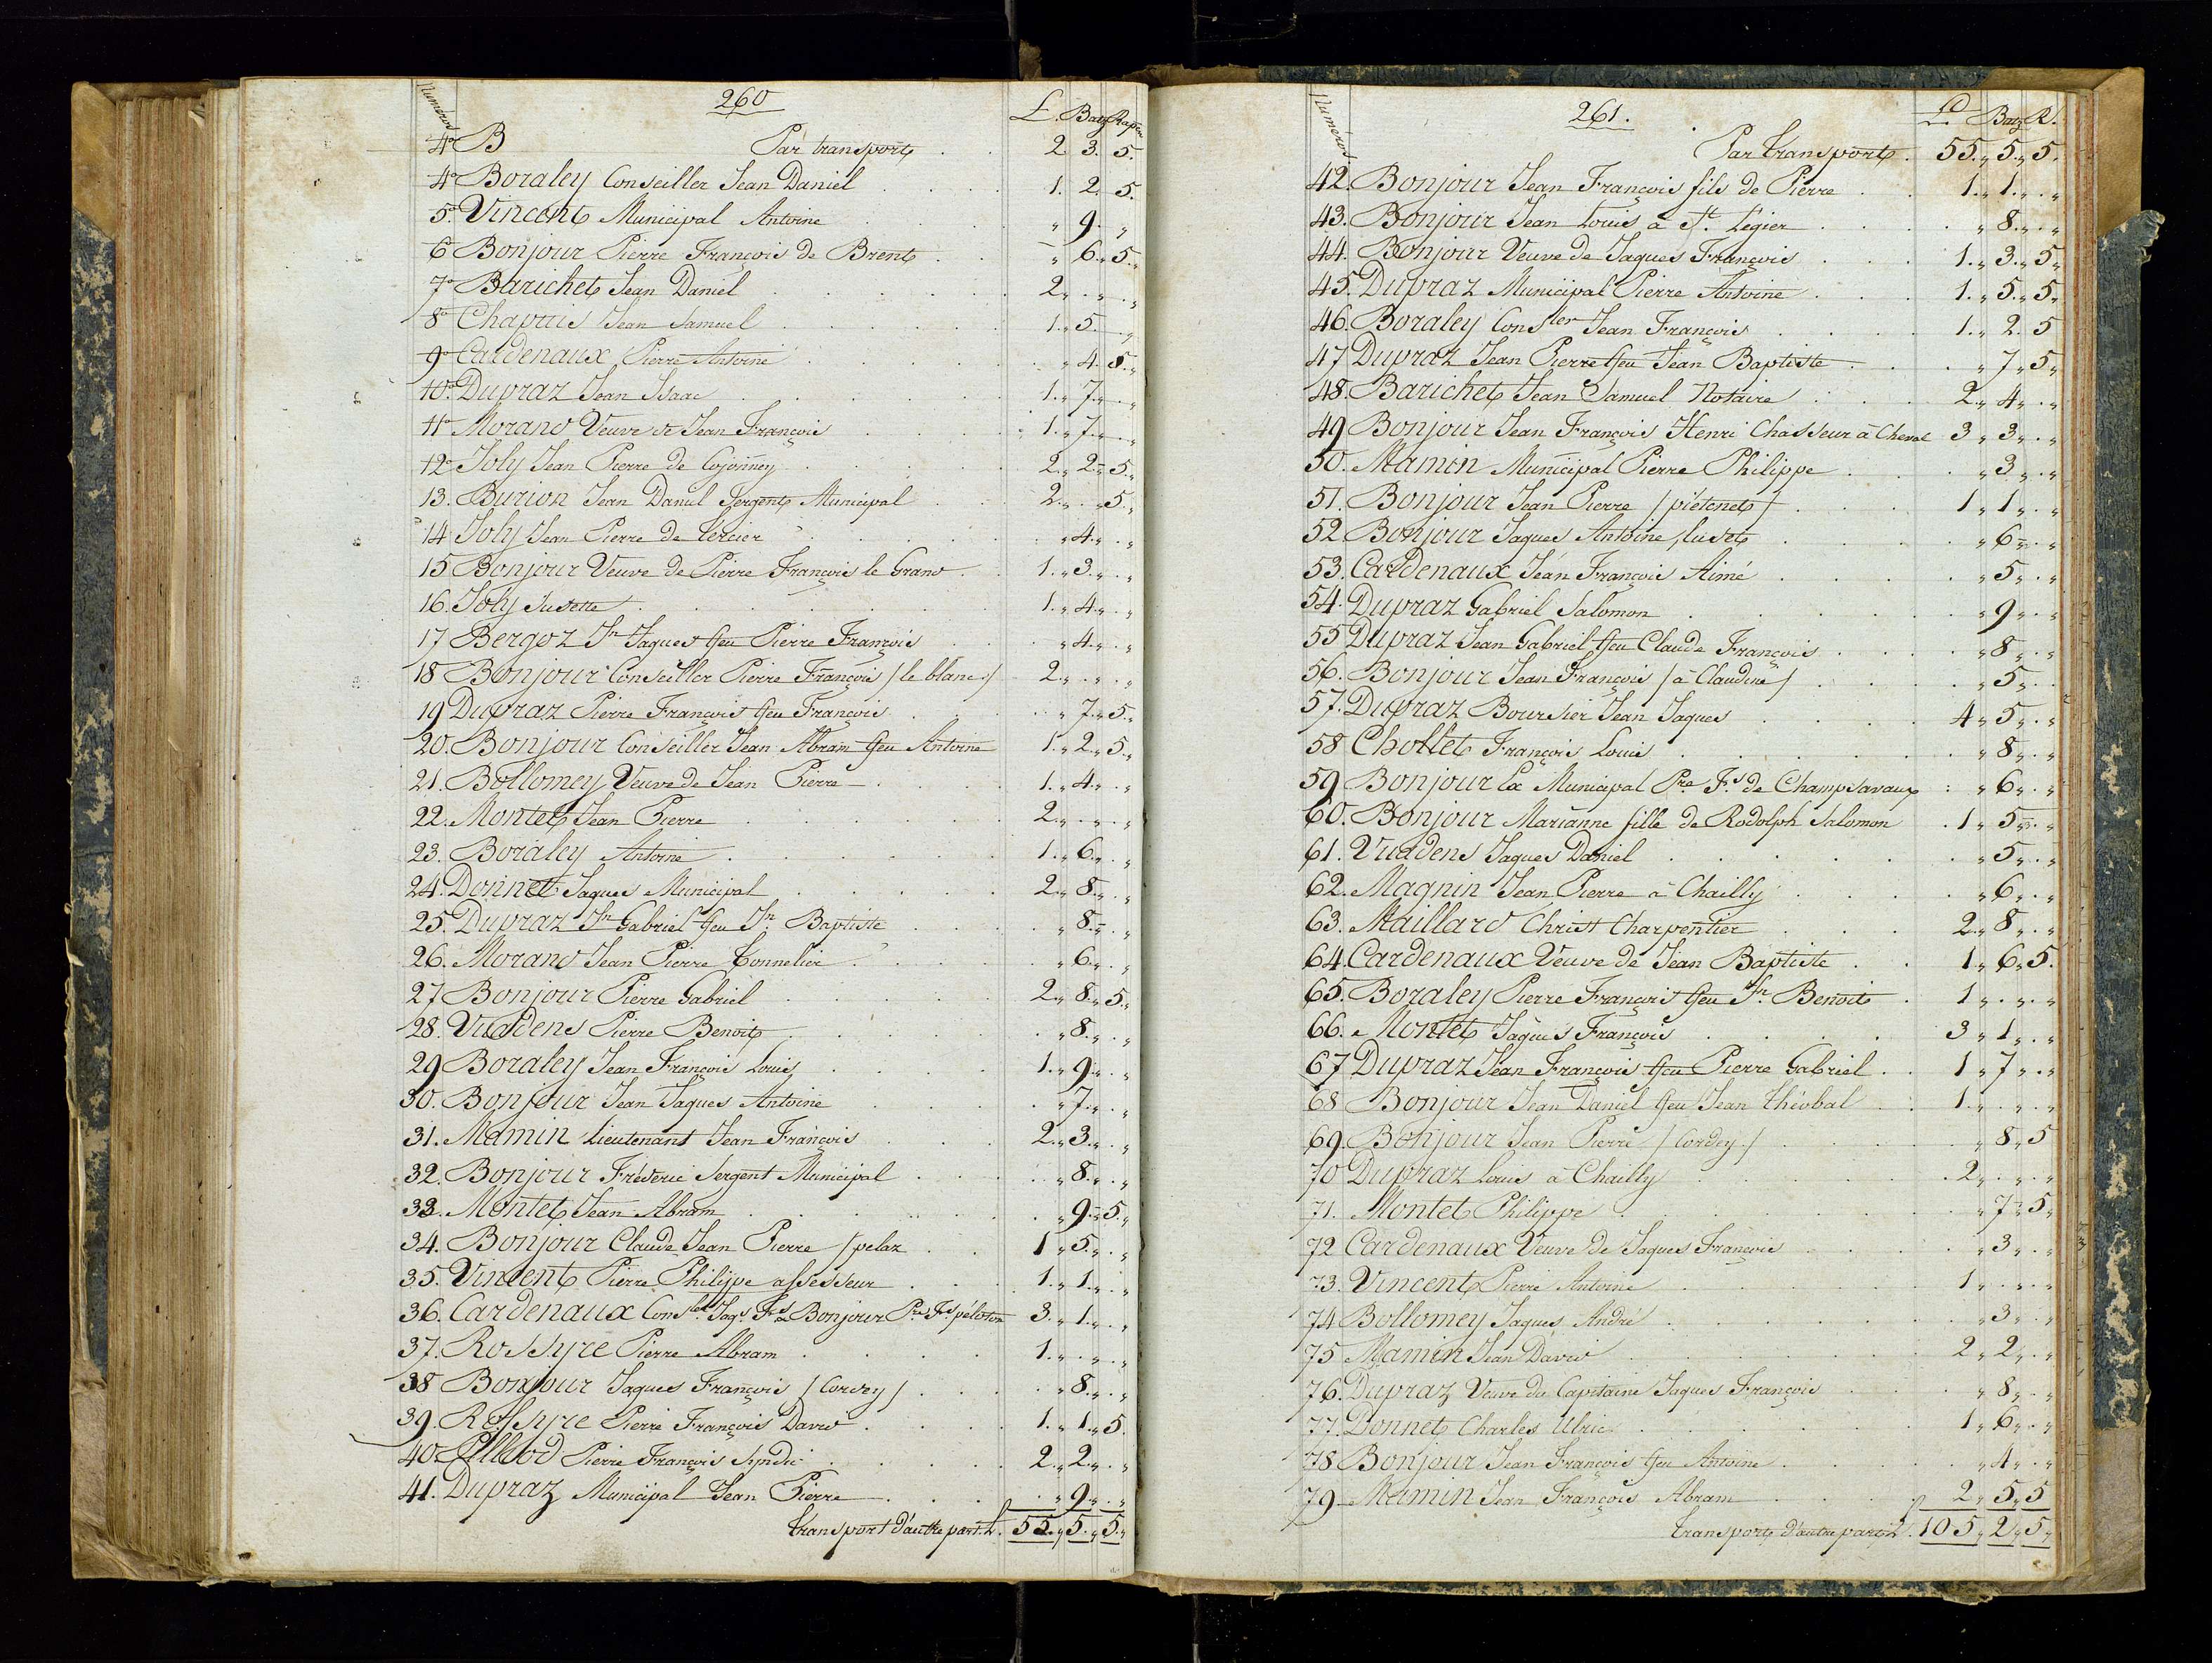 Numéros 260 £. Batz Rapen
4° B Par transport 2 3. 5.
4° Boraley Conseiller Jean Daniel 1. 2. 5.
5° Vincent Municipal Antoine " 9. "
6 Bonjour Pierre François de Brent " 6. 5.
7° Barichet Jean Daniel 2 " . "
8° Chapuis Jean Samuel 1. 5. "
9° Cardenaux Pierre Antoine " 4. 8.
10° Dupraz Jean Isaac 1. 7. "
11° Morand Veuve de Jean François 1. 7. "
12° Joly Jean Pierre de Cojonney 2. 2. 5.
13. Burion Jean Daniel Sergent Municipal 2. " 5.
14 Joly Jean Pierre de tercier " 4. "
15 Bonjour Veuve de Pierre François le Grand 1. 3. "
16. Joly Susette 1. 4. "
17 Bergoz Jn Jaques feu Pierre François " 4. "
18 Bonjour Conseiller Pierre François / le blanc / 2. " "
19 Dupraz Pierre François feu François " 7. 5.
20. Bonjour Conseiller Jean Abram feu Antoine 1. 2. 5.
21. Bollomey Veuve de Jean Pierre 1. 4. "
22. Montet Jean Pierre 2. " "
23. Boraley Antoine 1. 6. "
24. Donnet Jaques Municipal 2. 8. "
25. Dupraz Jn Gabriel feu Jn Baptiste " 8. "
26. Morand Jean Pierre Tonnelier " 6. "
27 Bonjour Pierre Gabriel 2. 8. 5.
28. Vuadens Pierre Benoit " 8. "
29 Boraley Jean François Louis 1. 9. "
30. Bonjour Jean Jaques Antoine " 7. "
31. Mamin Lieutenant Jean François 2. 3. "
32. Bonjour Fréderic Sergent Municipal " 8. "
33. Montet Jean Abram " 9. 5.
34. Bonjour Claude Jean Pierre / pelaz 1 5. "
35. Vincent Pierre Philippe assesseur 1. 1. "
36. Cardenaux Consler Jaqs Fs & Bonjour Pre Fs péloton 3. 1. "
37. Rossyre Pierre Abram 1. " "
38 Bonjour Jaques François / Cordey / " 8. "
39. Rossyre Pierre François David 1. 1. 5.
40 Pilliod Pierre François Syndic 2. 2. "
41. Dupraz Municipal Jean Pierre " 9. "
transport d'autre part. L. 55. 5. 5.
Numéros 261. L. Batz R.
Par transport. 55. 5. 5.
42. Bonjour Jean François fils de Pierre 1. 1. "
43. Bonjour Jean Louis à St. Légier " 8. "
44. Bonjour Veuve de Jaques François 1. 3. 5
45. Dupraz Municipal Pierre Antoine 1. 5. 5
46. Boraley Consler Jean François 1. 2. 5
47 Dupraz Jean Pierre feu Jean Baptiste " 7 5
48. Barichet Jean Samuel Notaire 2. 4. "
49 Bonjour Jean François Henri Chasseur à Cheval 3 3. "
50. Mamin Municipal Pierre Philippe " 3 "
51. Bonjour Jean Pierre / piétenet / 1 1. "
52 Bonjour Jaques Antoine / " 6 "
53. Cardenaux Jean François Aimé " 5. "
54. Dupraz Gabriel Salomon " 9 "
55 Dupraz Jean Gabriel feu Claude François " 8 "
56. Bonjour Jean François / à Claudine / " 5. "
57. Dupraz Boursier Jean Jaques 4 5. "
58 Chollet François Louis " 8 "
59 Bonjour Ex Municipal Pre Fs de Champsavaux " 6. "
60. Bonjour Marianne fille de Rodolph Salomon 1 5 "
61. Vuadens Jaques Daniel " 5. "
62. Magnin Jean Pierre à Chailly " 6 "
63. Maillard Christ Charpentier 2. 8 "
64. Cardenaux Veuve de Jean Baptiste 1. 6. 5.
65. Boraley Pierre François feu Jn Benoit 1 " "
66. Montet Jaques François 3 1. "
67 Dupraz Jean François feu Pierre Gabriel 1 7 "
68 Bonjour Jean Daniel feu Jean Théobal 1. " "
69. Bonjour Jean Pierre / Cordey / " 8. 5
70 Dupraz Louis à Chailly 2 " "
71. Montet Philippe " 7 5
72 Cardenaux Veuve de Jaques François " 3 "
73. Vincent Pierre Antoine 1 " "
74 Bollomey Jaques André " 3 "
75 Mamin Jean David 2 2 "
76. Dupraz Veuve du Capitaine Jaques François " 8. "
77. Donnet Charles Ulric 1 6. "
78 Bonjour Jean François feu Antoine " 4 "
79 Mamin Jean François Abram 2. 5. 5
transport d'autre part L. 105. 2. 5.